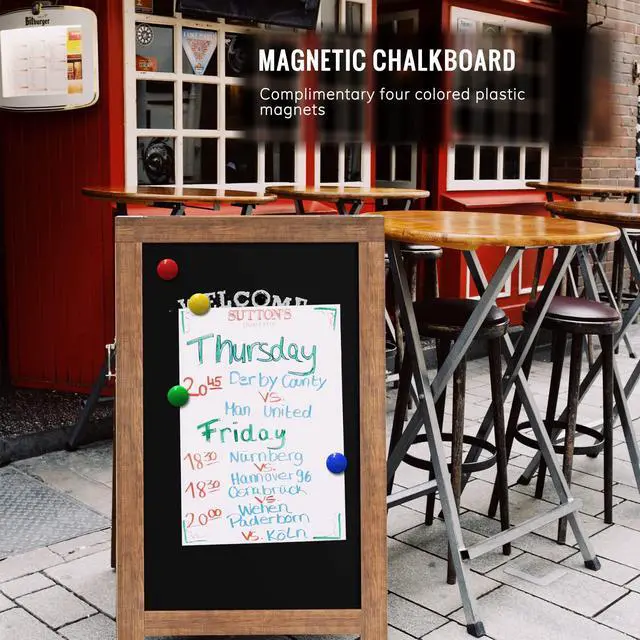 Bitburger
MAGNETIC CHALKBOARD
Complimentary four colored plastic
magnets
WELCOME
SUTTON'S
Thursday
2045 Derby County
VS.
Man United
Friday
1830 Nürnberg
VS.
Hannover 96
1830 Osnabrück
VS.
Wehen
2000 Paderborn
VS. KöLn